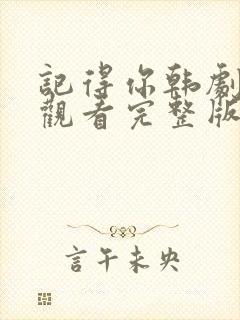 記得你韩劇
觀看完整版
言午未央